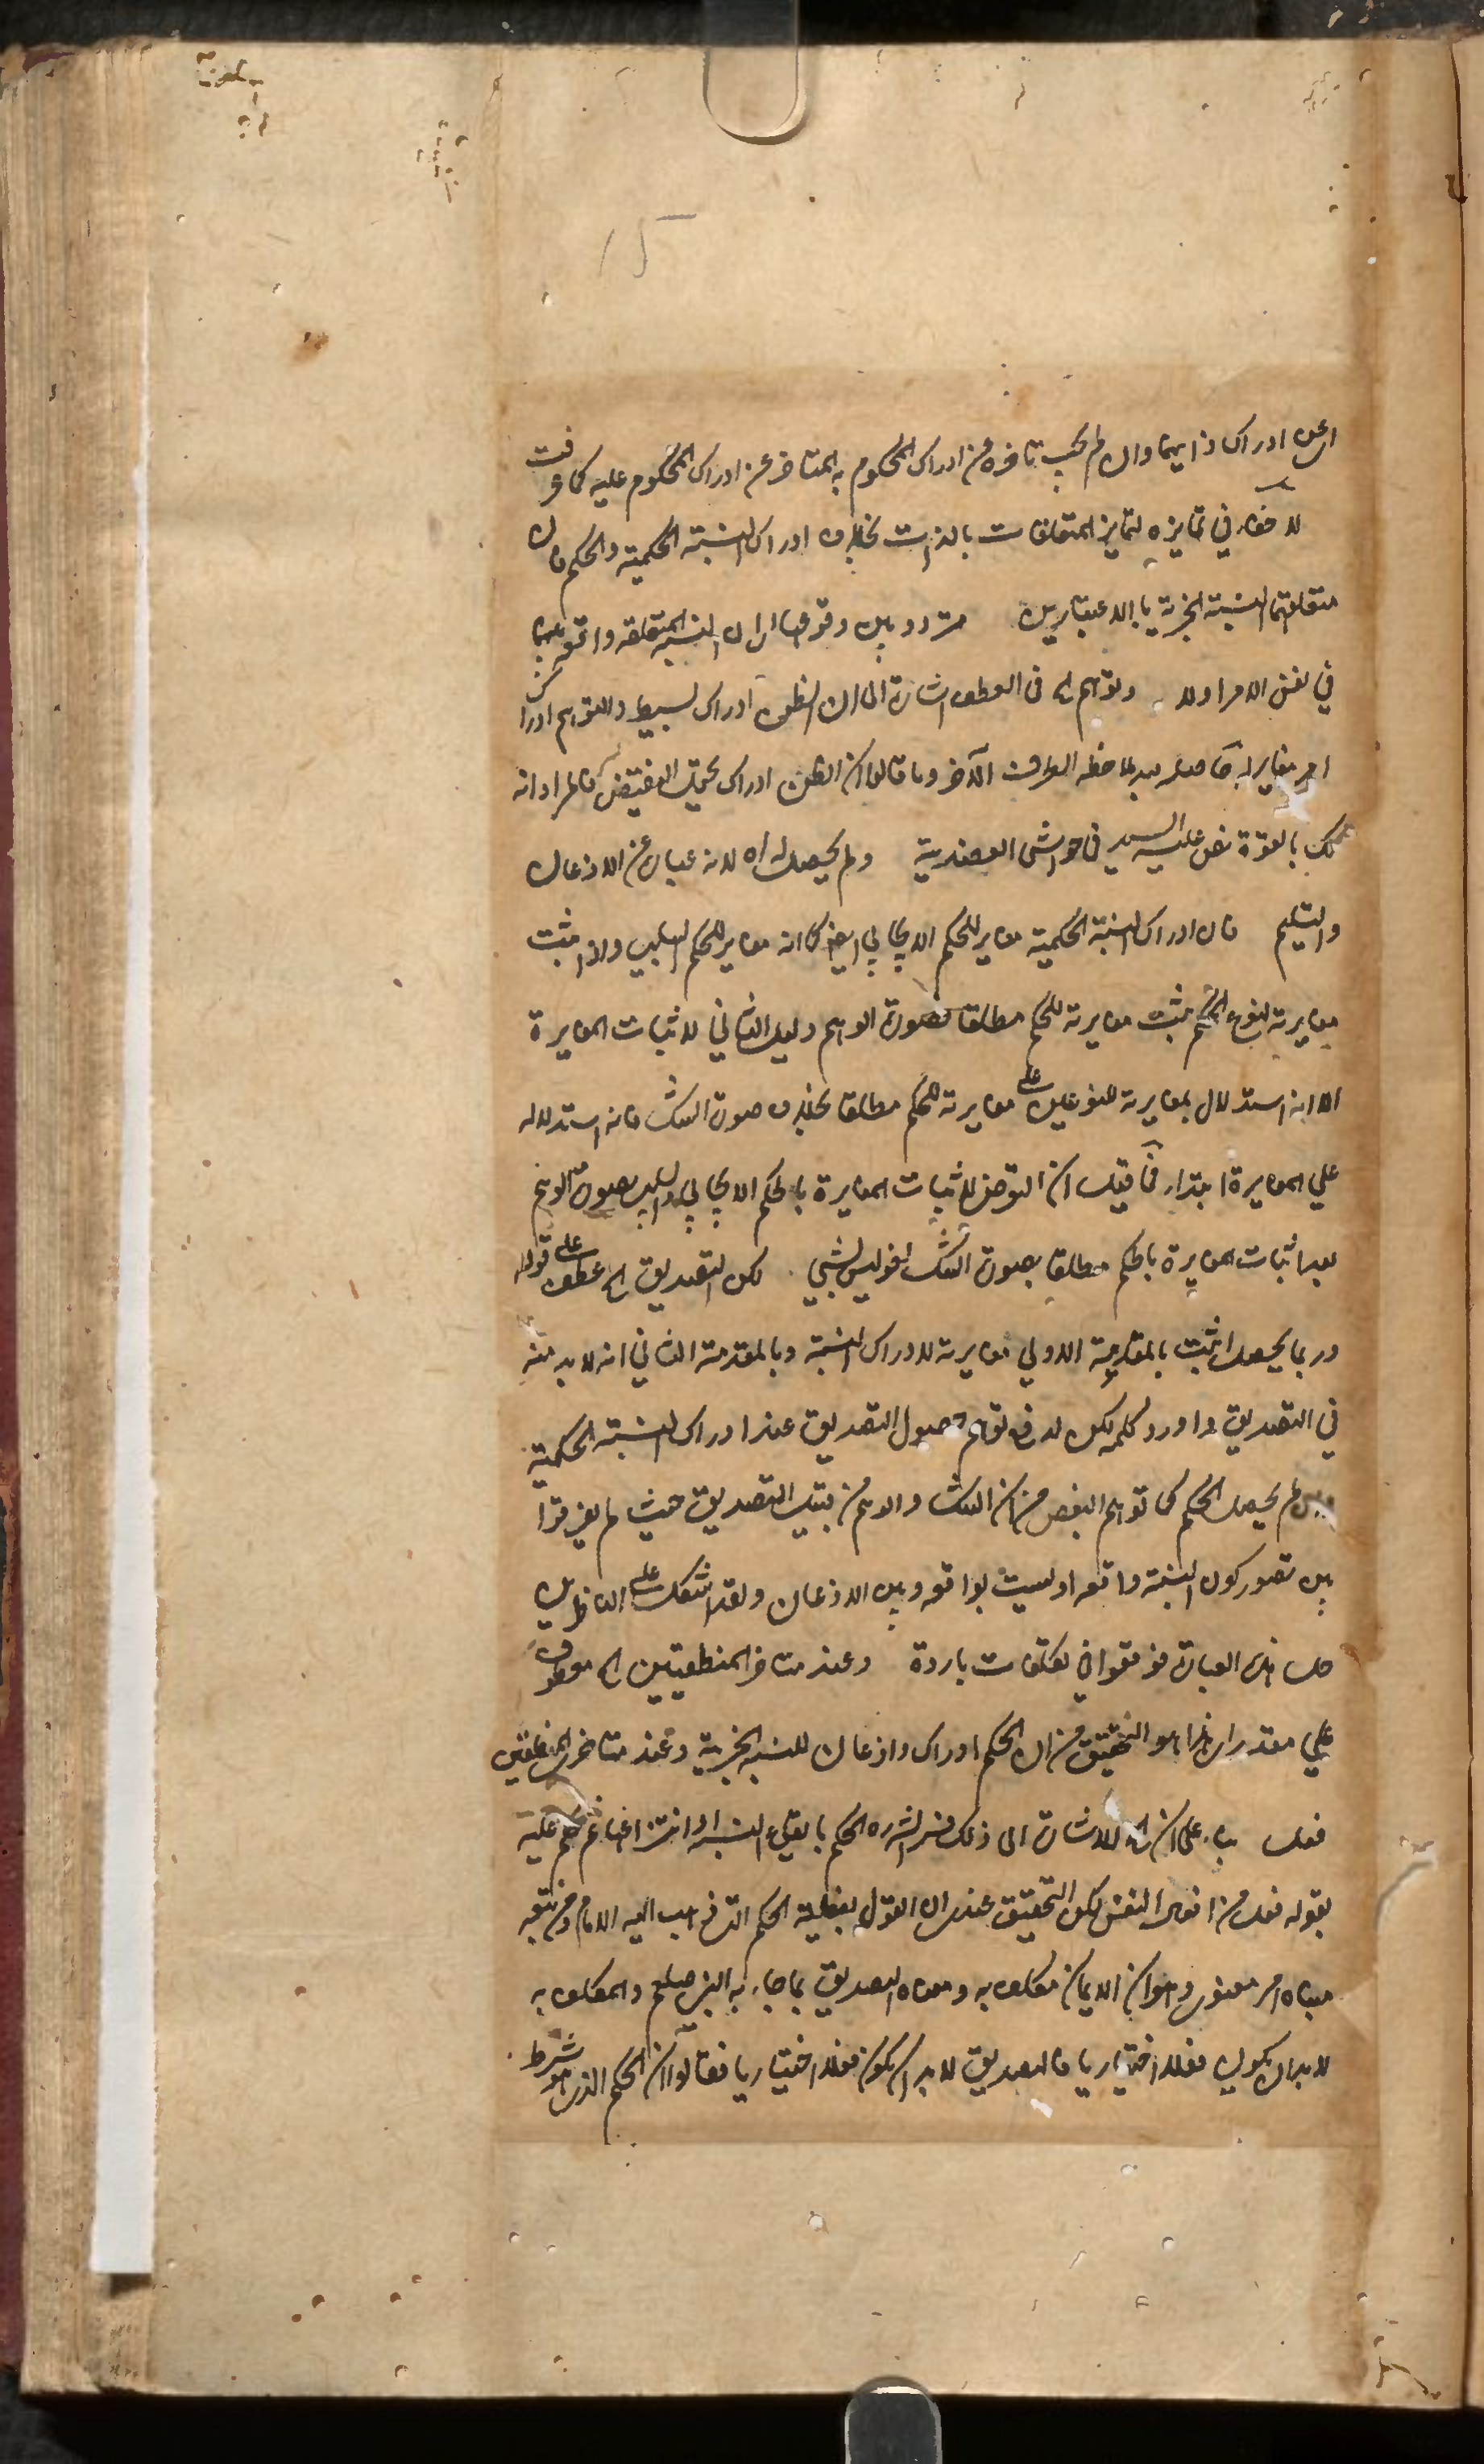 اى عن ادراك ذاتيهما وان لم يجب تاخره عن ادراك المحكوم به المتاخر عن ادراك المحكوم عليه كما عرفت
لا خفاء في تمايزه لتمايز المتعلقات بالذات بخلاف ادراك النسبة الحكمية والحكم فان
متعلقهما النسبة الخبرية بالاعتبارين متردد بين وقوعها اى ان النسبة المتعلقة واقعة بينهما
في نفس الامر اولا وتوهم له فى العطف اشارة الى ان الظن ادراك بسيط والتوهم ادراك
امر مغاير له حاصل بعد ملاحظة الطرف الآخر وما قالوا ان الظن ادراك يحتمل النقيض فالمراد انه
كك بالقوة نص عليه السيد فى حواشى العضدية ولم يحصل له اه لانه عبارة عن الاذعان
والتسليم فان ادراك النسبة الحكمية مغاير للحكم الايجابي ايضا كما انه مغاير للحكم السلبي واذا ثبت
مغايرته لنوعي الحكم ثبت مغايرته للحكم مطلقا فصورة الوهم دليل الثاني لاثبات المغايرة
الا انه استدلال بمغايرته للنوعين على مغايرته للحكم مطلقا بخلاف صورة الشك فانه استدلال
علي المغايرة ابتداء فما قيل ان التعرض لاثبات المغايرة بالحكم الايجابي والسلبي بصورة الوهم
بعد اثبات المغايرة بالحكم مطلقا بصورة الشك لغو ليس بشيء لكن التصديق الخ عطف على قوله
وربما يحصل اثبت بالمقدمة الاولي مغايرته لادراك النسبة وبالمقدمة الثاني انه لا بد منه
في التصديق واورد كلمة لكن لدفع توهم حصول التصديق عند ادراك النسبة الحكمية
وان لم يحصل الحكم كما توهم البعض من ان الشك والوهم من قبيل التصديق حيث لم يفرقوا
بين تصور كون النسبة واقعة او ليست بواقعة وبين الاذعان ولقد اشكل على الناظرين
حل هذه العبارة فوقعوا في تكلفات باردة وعند متاخرى المنطقيين الخ معطوف
علي مقدر اى هذا هو التحقيق من ان الحكم ادراك واذعان للنسبة الخبرية وعند متاخرى المنطقيين
فعل بناء على ان للاشارة الى ذلك فسر الشره الحكم بايقاع النسبة او انتزاعها ثم حكم عليه
بقوله فعل من افعال النفس لكن التحقيق عندى ان القول بفعلية الحكم التى ذهب اليه الامام ومن تبعه
مبناه امر معنوى وهو ان الايمان مكلف به ومعناه التصديق بما جاء به النبي صلعم والمكلف به
لا بد ان يكون فعلا اختياريا فالتصديق لا بد ان يكون فعلا اختياريا فقالوا ان الحكم الذى هو شرط